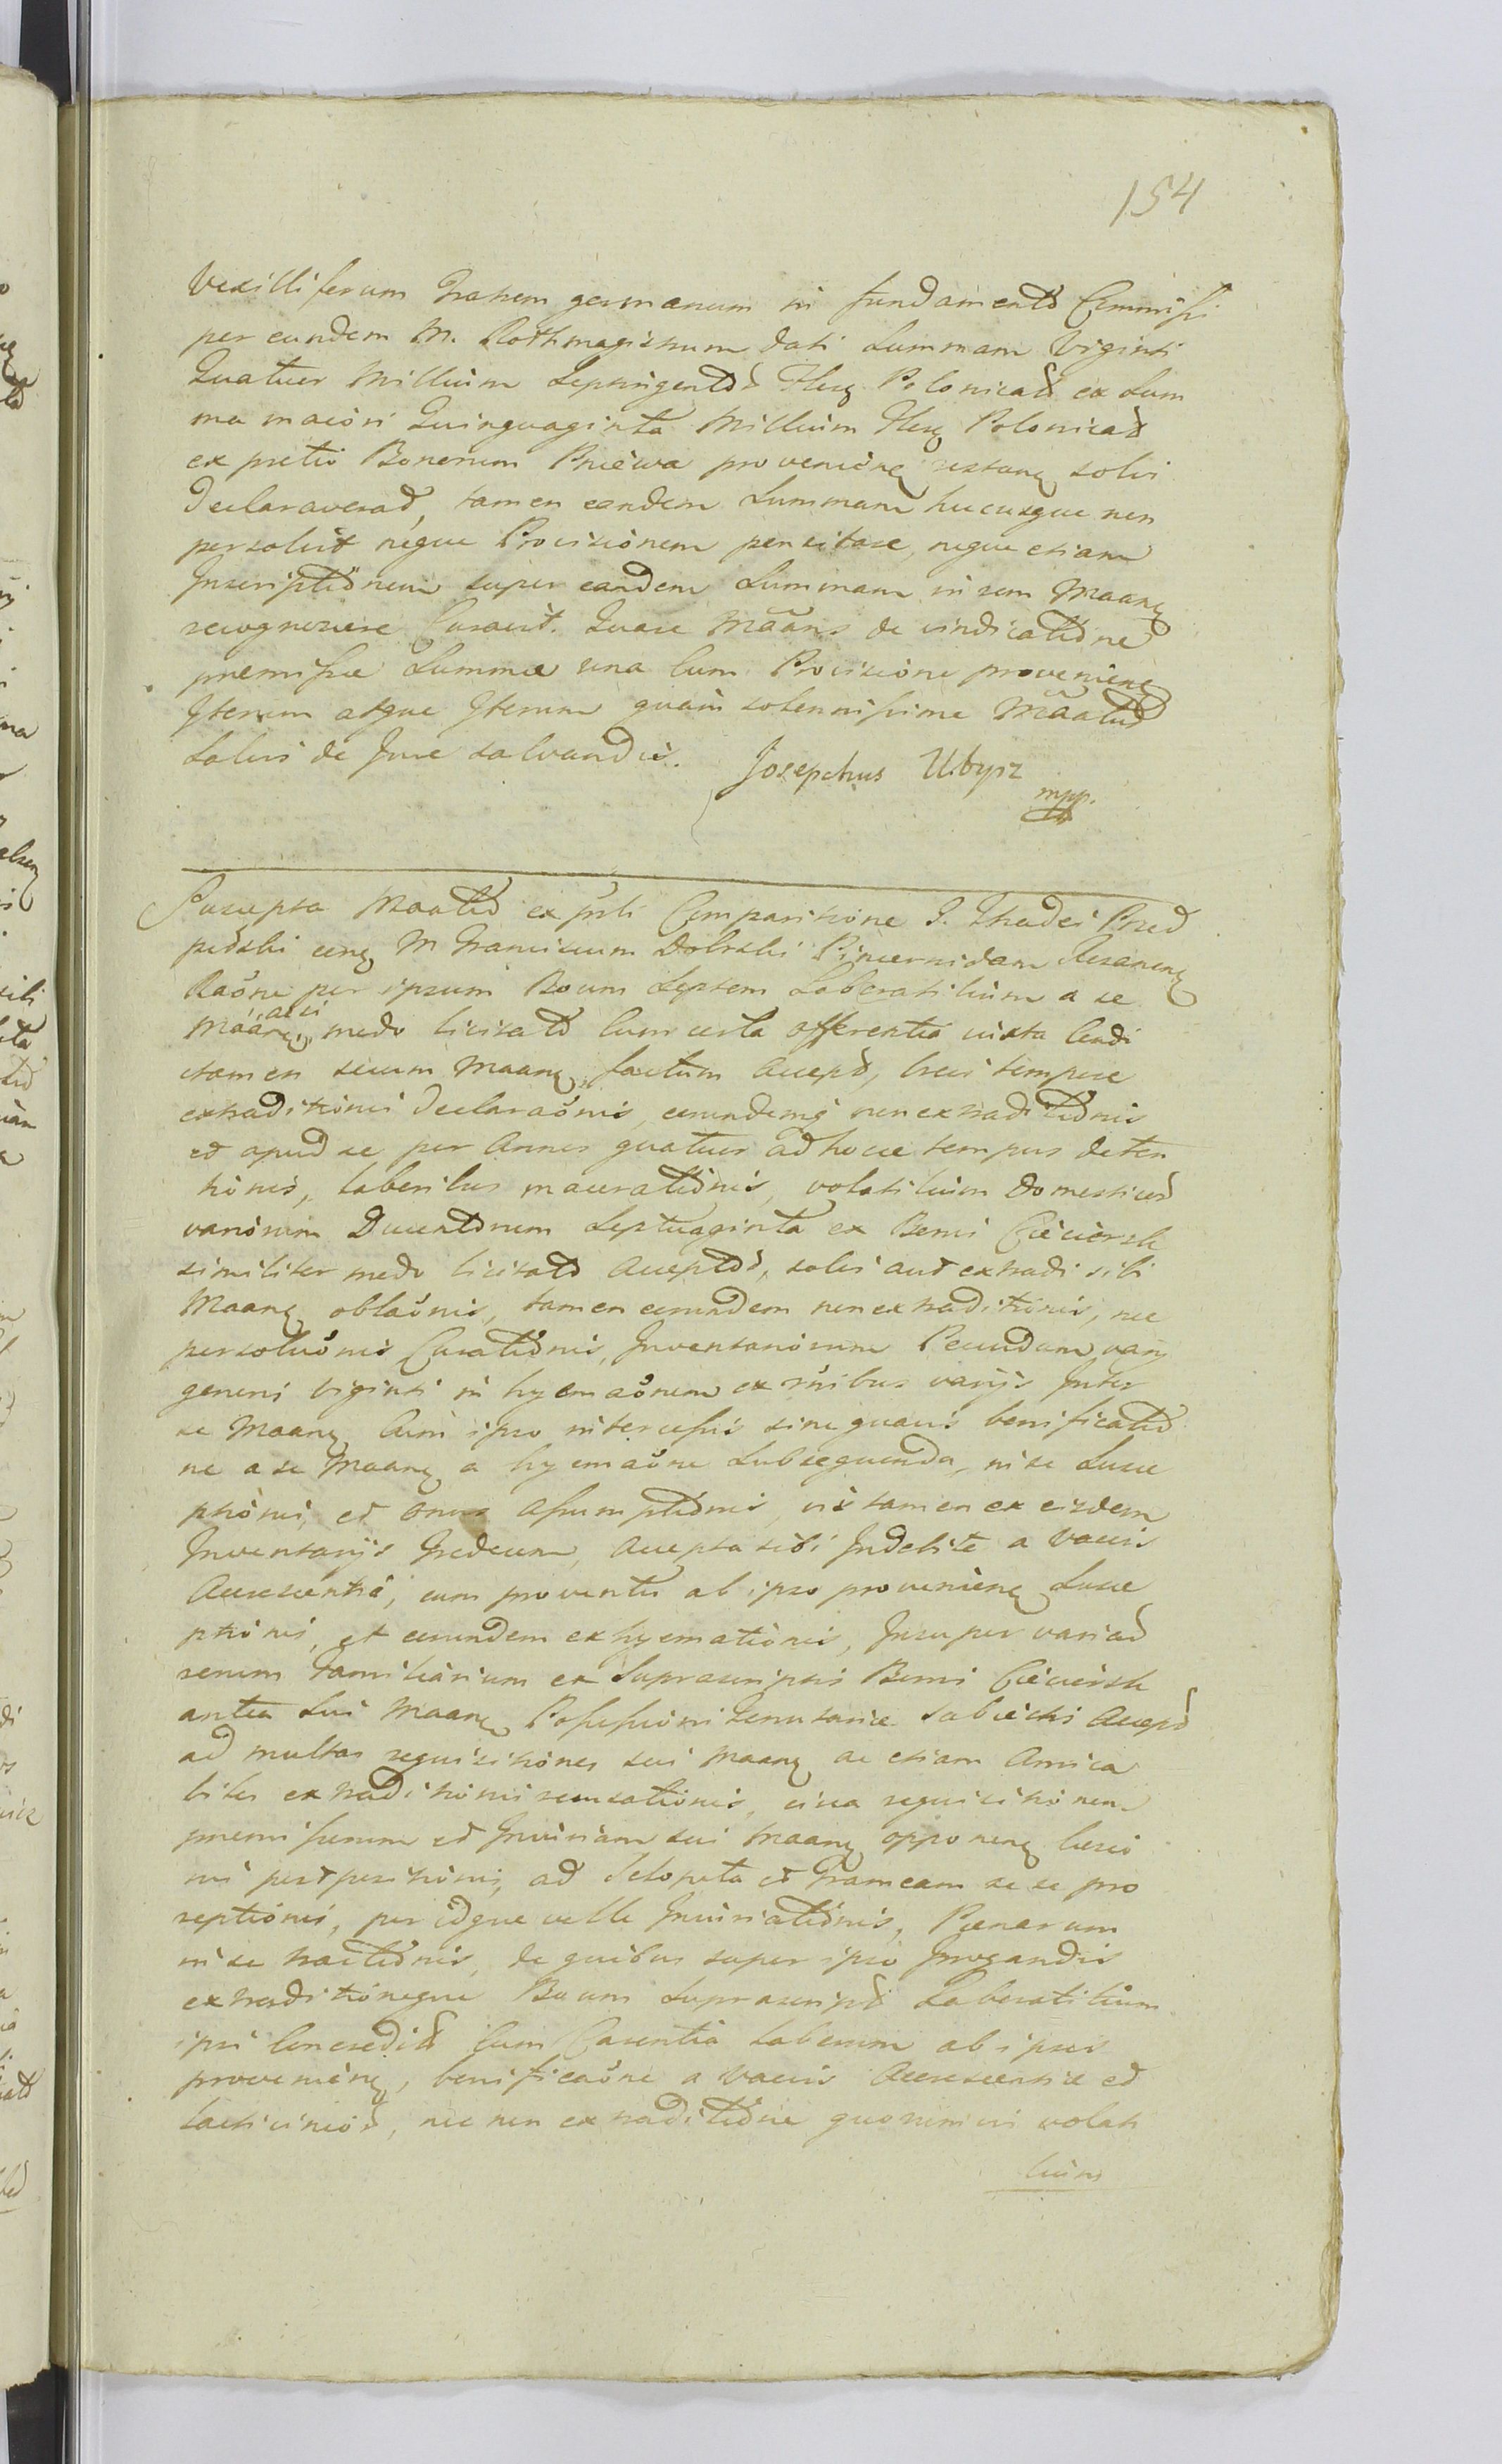 154
Vexilliferum Fratrem germanum in fundamento Commissi
per eundem M. Rothmagistrum dati Summam Viginti
Quatuor Millium Septingentor Flor Polonical ex Sum
ma maiori Quinquaginta Millium Flor Polonical
ex pretio Bonorum Pniewa provenien restan solvi
declaraverat, tamen eandem Summam hucusque non
persolvit neque Provisionem pensitare, neque etiam
Inscriptionem super eandem Summam in rem Maan
recognoscere Curavit. Quare Maans de vindicatione
premissae Summae una cum Provisione provenien
Iterum atque Iterum quam solennissime Maatur
Salvis de Jure salvandis.
Josephus Ubysz
mpp.
Suscepta Maatio ex psti Comparitione G. Thadei Przed
pełski cong M Franciscum Dobrski Pincernidam
Raone per ipsum Boum Septem Laboratilium a se
Maan, acsi modo licitato cum certa offerentia iuxta Cendi
ctamen secum Maan factum accept, brevi tempore
extraditionis declaraonis, eorundemq non extraditionis
et apud se per Annos quatuor ad hocce tempus deten
tionis, laboribus macerationis, volatilium Domesticor
variorum Ducentorum Septuaginta ex Bonis Cieciersk
similiter modo licitato acceptor, solvi aut extradi sibi
Maan oblaonis, tamen eorundem non extraditionis, nec
persoluonis Curationis, Inventariorum Pecudum varij
generis viginti in hyemaonem ex varijs Inter
se Maan cum ipso intercessis sine quavis bonificatio
ne a se Maan a hyemaone Subsequenda, in se Susce
ptionis, et onus Assumptionis, vis tamen ex eisdem
Inventarijs Gredecem, accepta sibi Indebite a Vaccis
Accrescentia, cum proventu ab ipso provenien Susce
ptionis, et eorundem exhyemationis, Insuper variar
rerum familiarium ex Suprascriptis Bonis Cieciersk
antea Sui Maan Possessionis tenutariae Sabiecki accept
ad multas requisitiones sui Maan ac etiam Amica
biles extraditionis recusationis, circa requisitionem
premissorum et Iniuriam sui Maan opponen laesio
nis postpositionis, ad Sclopeta et Frameam se se pro
reptionis, per idque velle Iniuriationis, Poenarum
in se tractionis, de quibus super ipso Irrogandis
extraditioneque Boum Suprascript Laboratilium
ipsi Concredit cum Carentia laborum ab ipsis
provenien, bonificaone a Vaccis Accrescentiae et
lacticinior, nec non extraditione quorumvis volati
lium